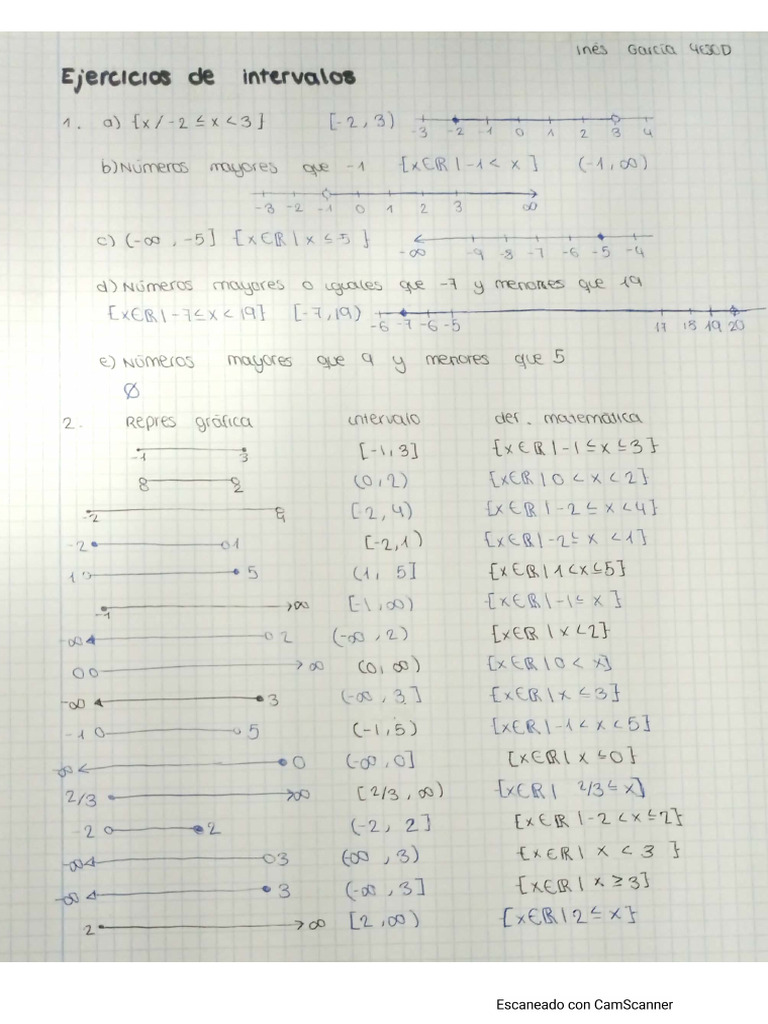 Inés García 4ESOD
Ejercicios de intervalos
1. a) {x/-2 ≤ x < 3} [-2, 3) -3 -2 -1 0 1 2 3 4
b) Números mayores que -1 {x∈ℝ | -1 < x } (-1, ∞)
-3 -2 -1 0 1 2 3 ∞
c) (-∞, -5] {x∈ℝ | x ≤ 5 } -∞ -9 -8 -7 -6 -5 -4
d) Números mayores o iguales que -7 y menores que 19
{x∈ℝ | -7 ≤ x < 19} [-7, 19) -6 -7 -6 -5 17 18 19 20
e) Números mayores que 9 y menores que 5
∅
2. Repres gráfica intervalo def. matemática
-1 3 [-1, 3] {x∈ℝ | -1 ≤ x ≤ 3}
0 2 (0, 2) {x∈ℝ | 0 < x < 2}
-2 4 [-2, 4) {x∈ℝ | -2 ≤ x < 4}
-2 1 [-2, 1) {x∈ℝ | -2 ≤ x < 1}
1 5 (1, 5] {x∈ℝ | 1 < x ≤ 5}
-1 ∞ [-1, ∞) {x∈ℝ | -1 ≤ x }
-∞ 2 (-∞, 2) {x∈ℝ | x < 2}
0 ∞ (0, ∞) {x∈ℝ | 0 < x}
-∞ 3 (-∞, 3] {x∈ℝ | x ≤ 3}
-1 5 (-1, 5) {x∈ℝ | -1 < x < 5}
-∞ 0 (-∞, 0] {x∈ℝ | x ≤ 0}
2/3 ∞ [2/3, ∞) {x∈ℝ | 2/3 ≤ x}
-2 2 (-2, 2] {x∈ℝ | -2 < x ≤ 2}
-∞ 3 (-∞, 3) {x∈ℝ | x < 3 }
-∞ 3 (-∞, 3] {x∈ℝ | x ≥ 3}
2 ∞ [2, ∞) {x∈ℝ | 2 ≤ x}
Escaneado con CamScanner